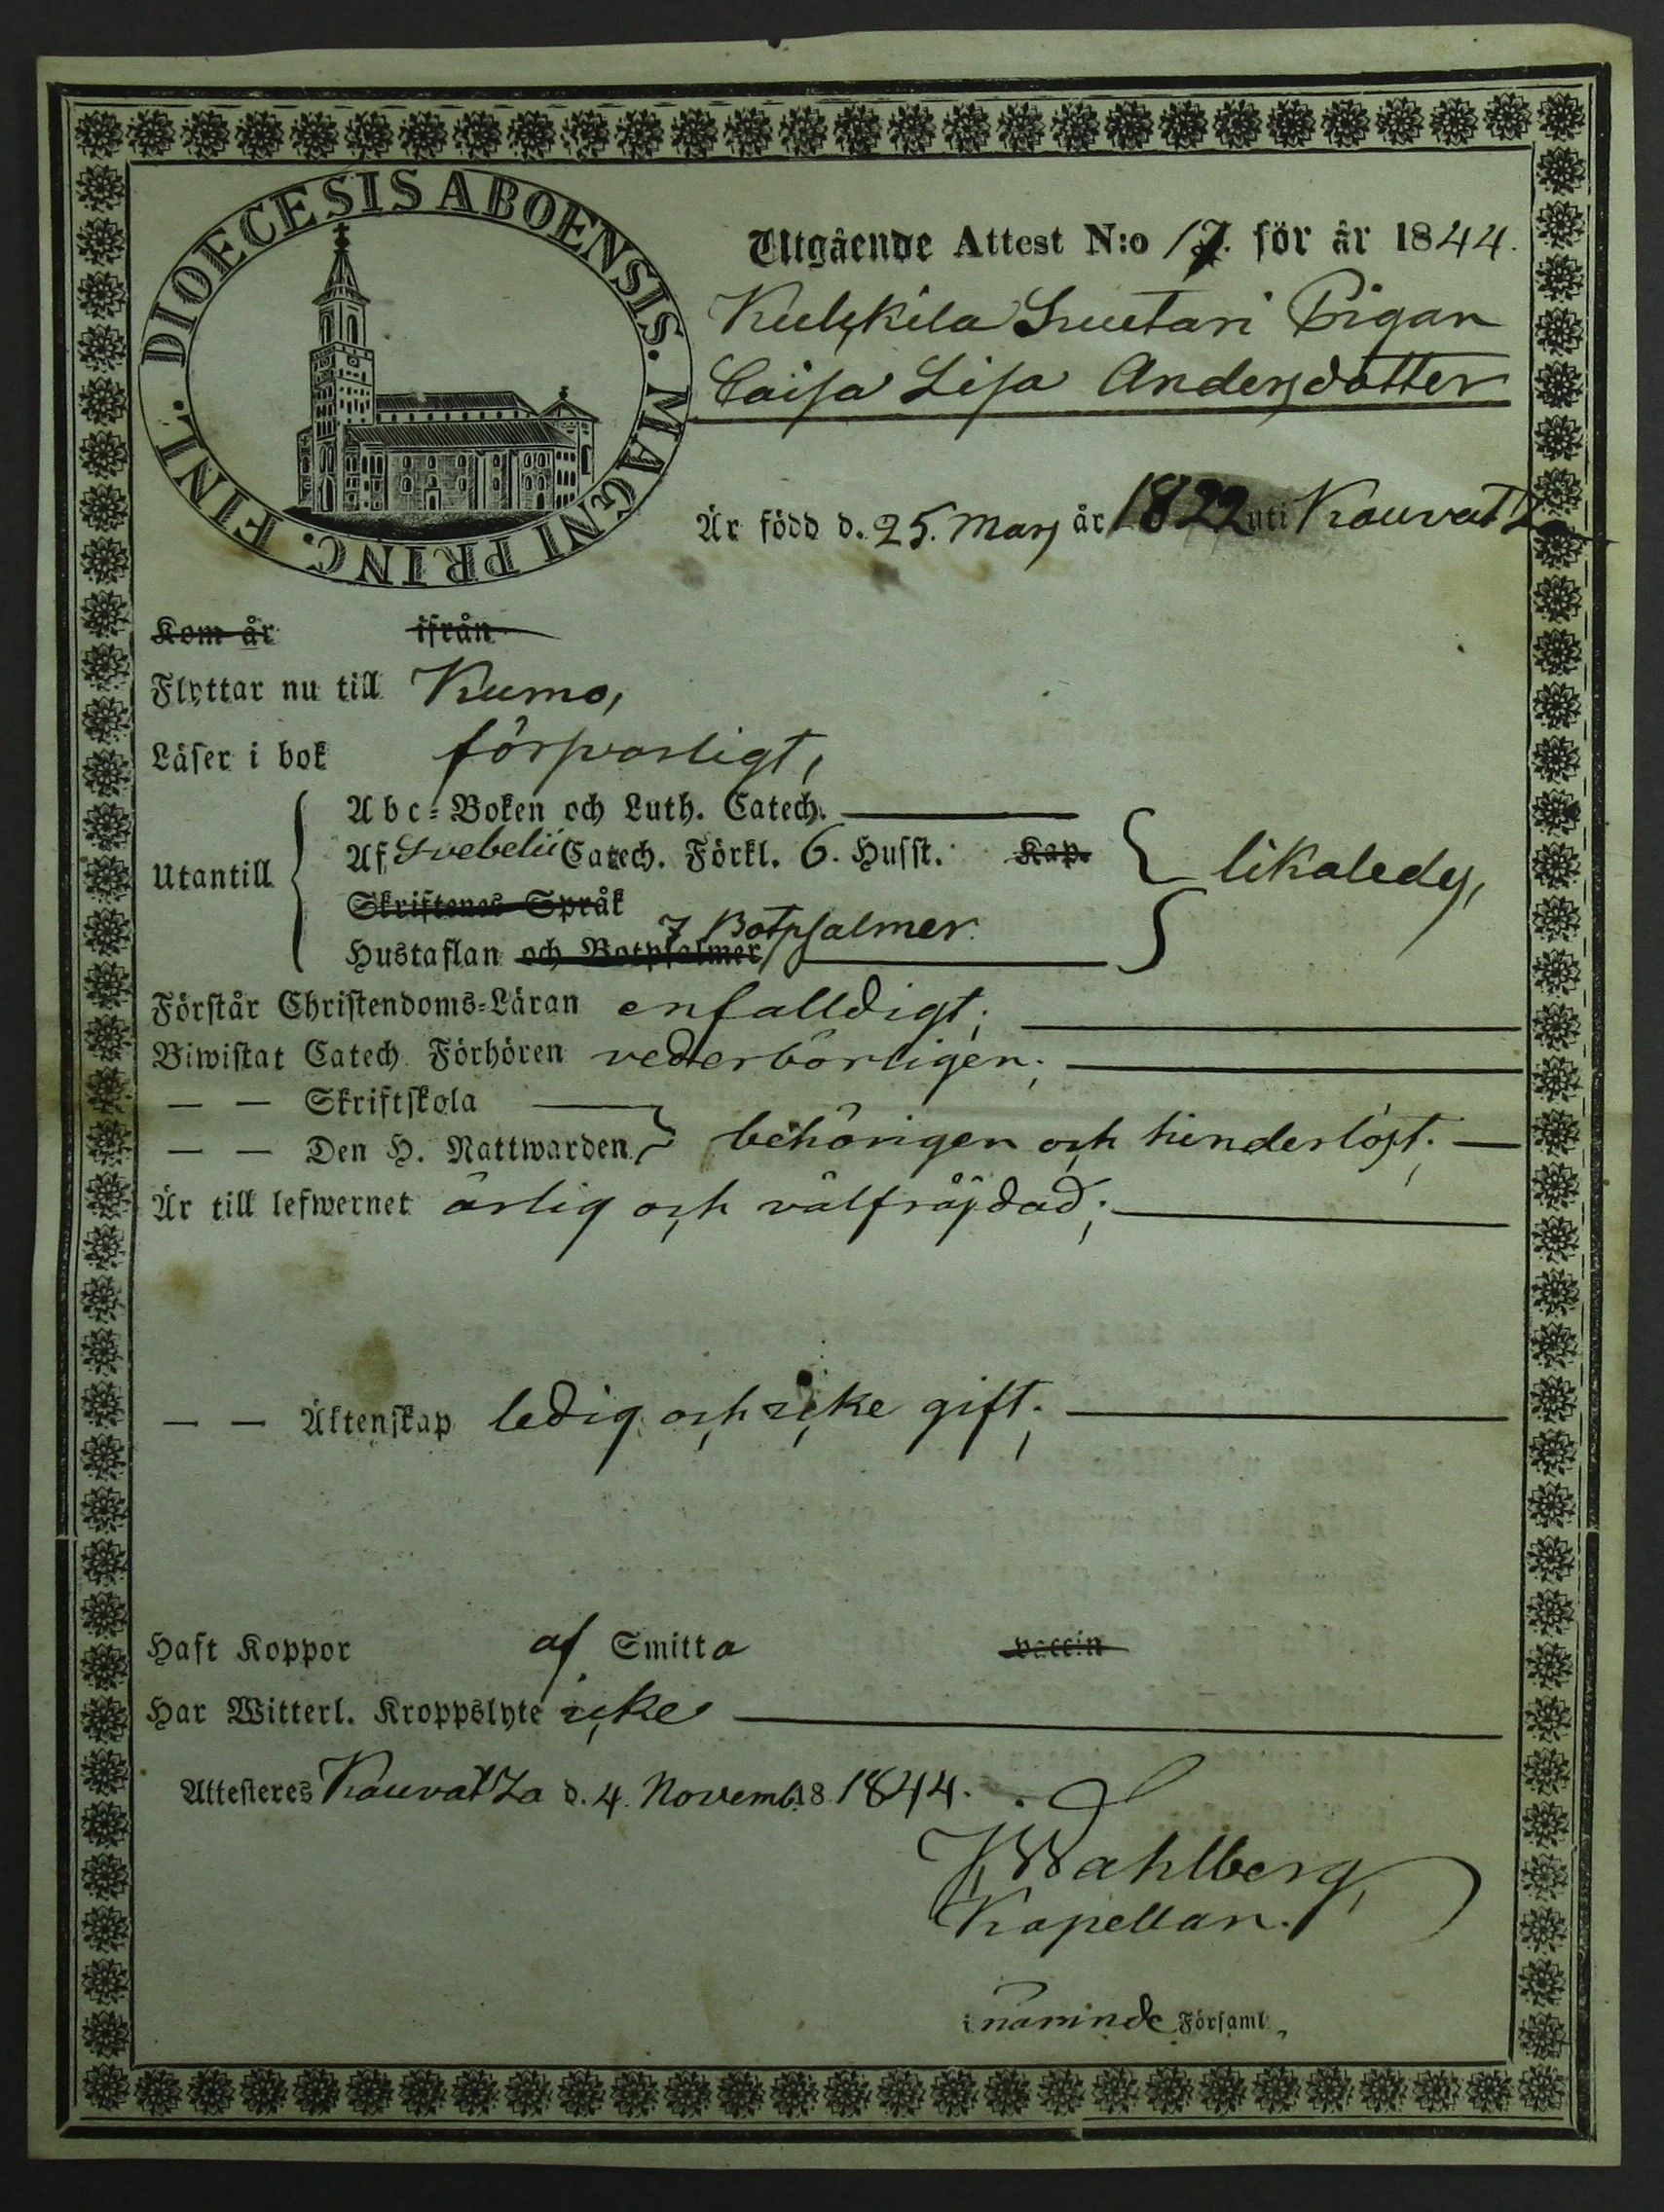 DIOECESIS ABOENSIS. MAGNI PRINC. FINL.
Utgående Attest N:o 17. för år 1844.
Kulkkila Suutari Pigan
Caisa Lisa Andersdotter
Är född d. 25. Mars år 1822 uti Kauvatza
Kom år ifrån
Flyttar nu till Kumo,
Läser i bok försvarligt,
Utantill
Abc-Boken och Luth. Catech.
Af Svebelii Catech. Förkl. 6. Husst. Kap.
likaledes,
Skriftenes Språk
7 Botpsalmer
Hustaflan och Botpsalmer
Förstår Christendoms-Läran enfalldigt;
Biwistat Catech. Förhören vederbörligen;
— — Skriftskola
— — Den H. Nattwarden behörigen och hinderlöst;
Är till lefwernet ärlig och välfräjdad;
— — Äktenskap ledig och icke gift;
Haft Koppor af Smitta vaccin
Har Witterl. Kroppslyte icke
Attesteres Kauvatza d. 4. Novemb. 18 1844.
Wahlberg
Kapellan.
i nämnde Församl.